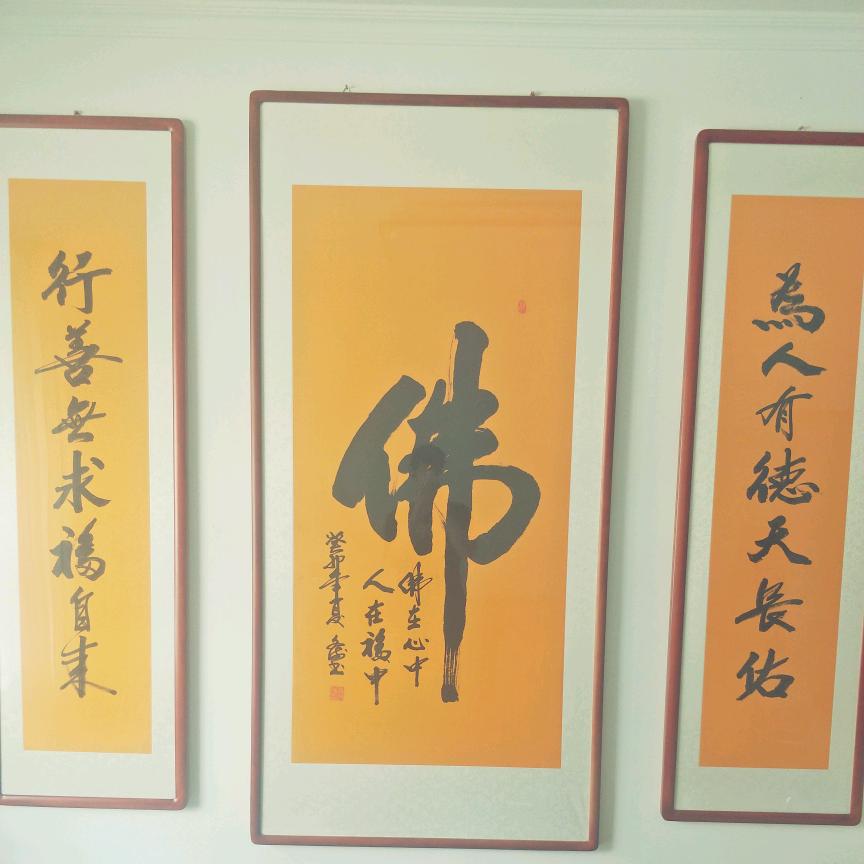 為人有德天長佑
佛
佛在心中
人在福中
癸卯年夏
行善無求福自來